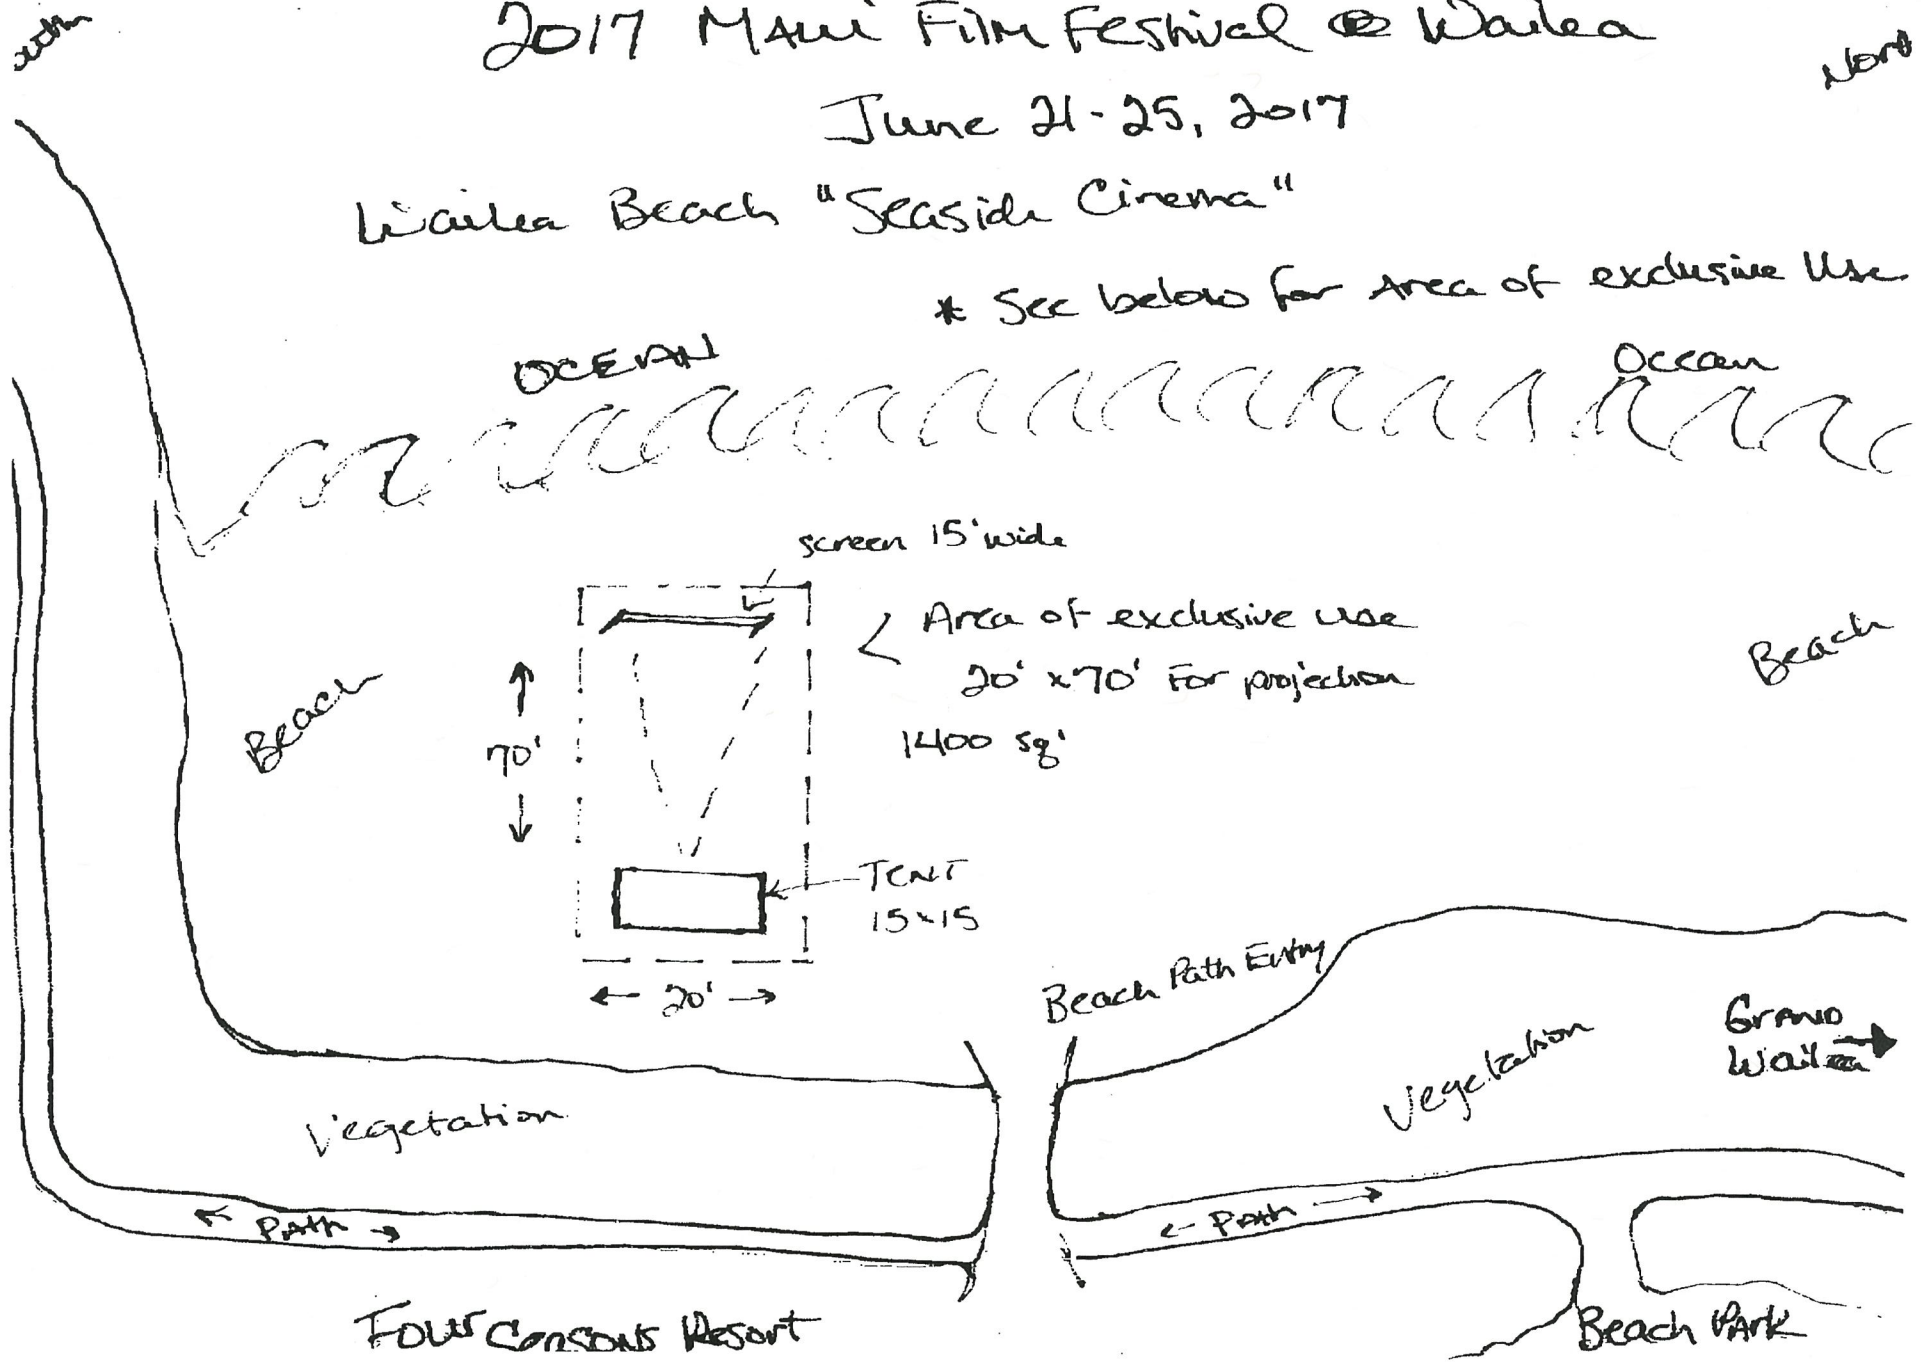 2017 Maui Film Festival @ Wailea
June 21-25, 2017
Wailea Beach "Seaside Cinema"
* See below for Area of exclusive Use
OCEAN
Ocean
screen 15' wide
Area of exclusive use
20' x 70' For projection
1400 sq'
Beach
Beach
70'
TENT
15x15
20'
Beach Path Entry
Grand
Wailea
Vegetation
Vegetation
← Path →
← Path →
Four Seasons Resort
Beach Park